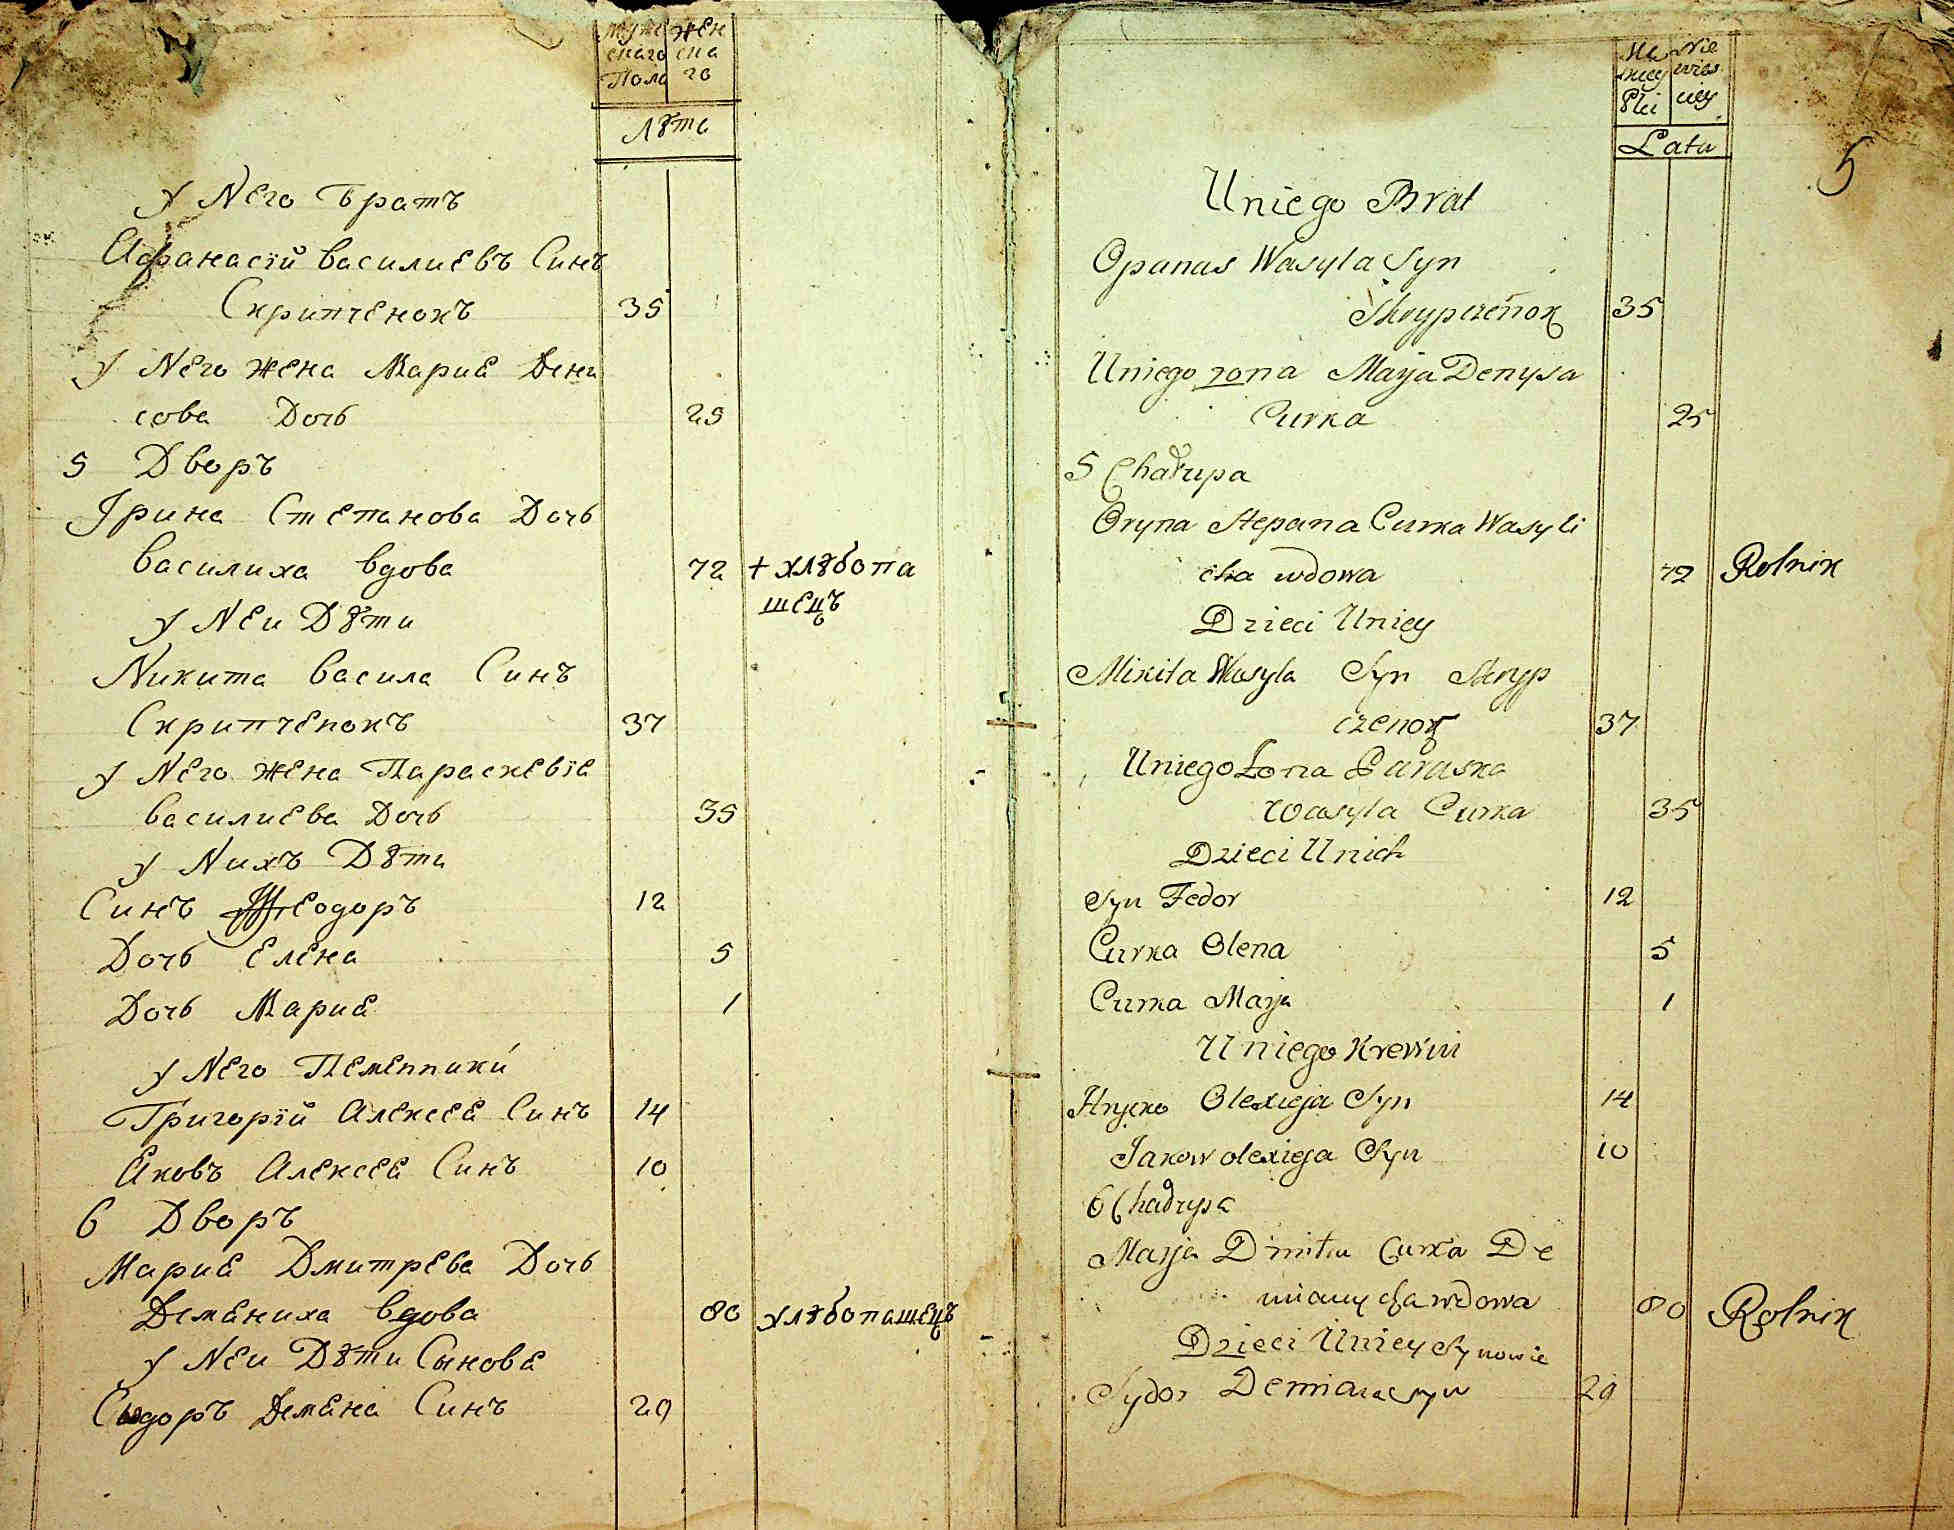 Муже
скаго
Пола
жен
ска
го
Лѣта
у Него Братъ
Афанасій Василиевъ Синъ
Скрипченокъ 35
у Него жена Мариа Дени
сова Дочь 25
5 Дворъ
Ірина Степанова Дочь
Василиха вдова 72 + хлѣбопа
шецъ
у Неи Дѣти
Никита Васила Синъ
Скрипченокъ 37
у Него жена Параскевіа
Василиева Дочь 35
у Нихъ Дѣти
Синъ Феодоръ 12
Дочь Елена 5
Дочь Мариа 1
у Него Племенники
Григорій Алексеа Синъ 14
Яковъ Алексеа Синъ 10
6 Дворъ
Мариа Дмитрева Дочь
Демяниха вдова 80 хлѣбопашецъ
у Неи Дѣти Сынове
Сидоръ Демяна Синъ 29
Mę
skiey
Płci
Nie
wies
ciey
Lata
5
Uniego Brat
Opanas Wasyla Syn
Skrypczenok 35
Uniego zona Marja Denysa
Curka 25
5 Chałupa
Oryna Stepana Curka Wasyli
cha wdowa 72 Rolnik
Dzieci Uniey
Mikita Wasyla Syn Skryp
czenok 37
Uniego Żona Paraska
Wasyla Curka 35
Dzieci Unich
Syn Fedor 12
Curka Olena 5
Curka Marja 1
Uniego Krewni
Hrycko Olexieja Syn 14
Jakow olexieja Syn 10
6 Chałupa
Marja Dmitra Curka De
mianycha wdowa 80 Rolnik
Dzieci Uniey Synowie
Sydor Demiana syn 29